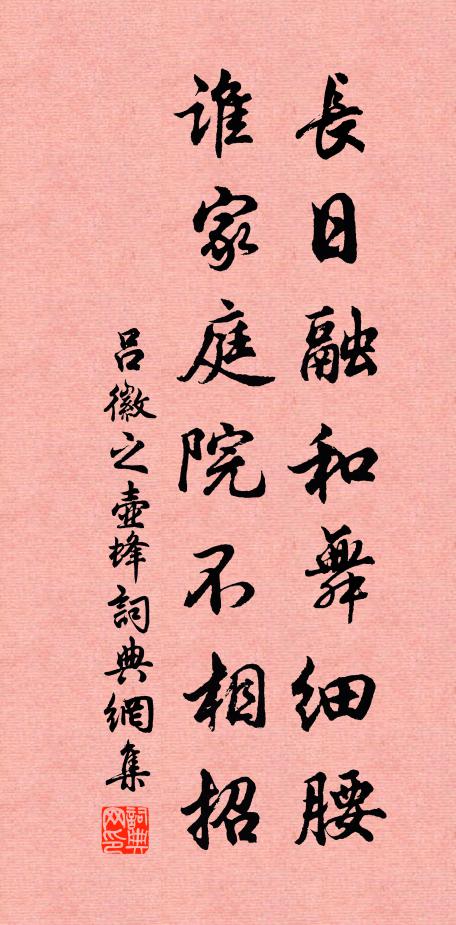 長日融和舞細腰
誰家庭院不相招
吕徽之壺蜂詞典網集
詞典
网印